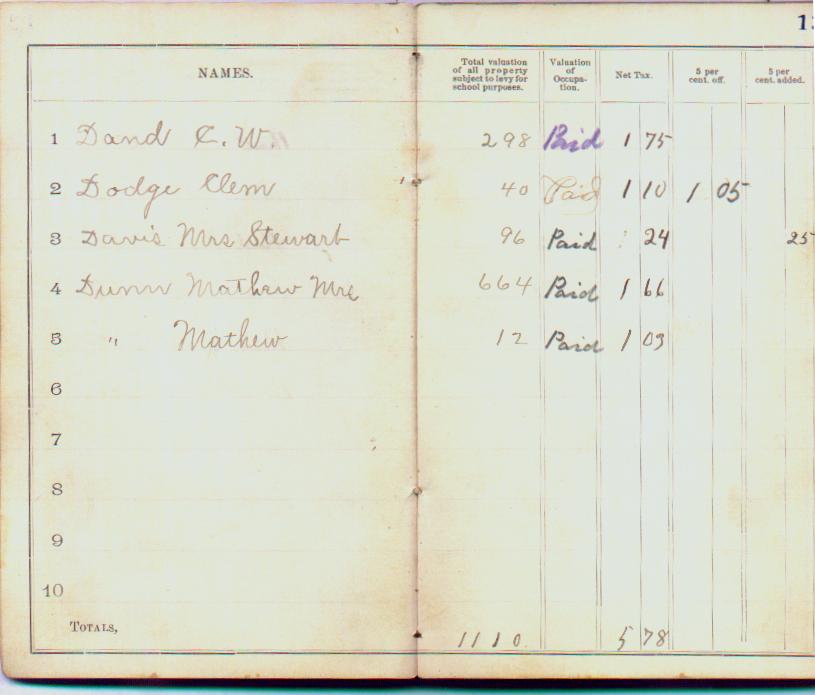 13
NAMES. Total valuation of all property subject to levy for school purposes. Valuation of Occupa- tion. Net Tax. 5 per cent. off. 5 per cent. added.
1 Dand C. W. 298 Paid 1 75
2 Dodge Clem 40 Paid 1 10 1 05
3 Davis Mrs Stewart 96 Paid 24 25
4 Dunn Mathew Mrs 664 Paid 1 66
5 " Mathew 12 Paid 1 03
6
7
8
9
10
TOTALS, 1110 5 78